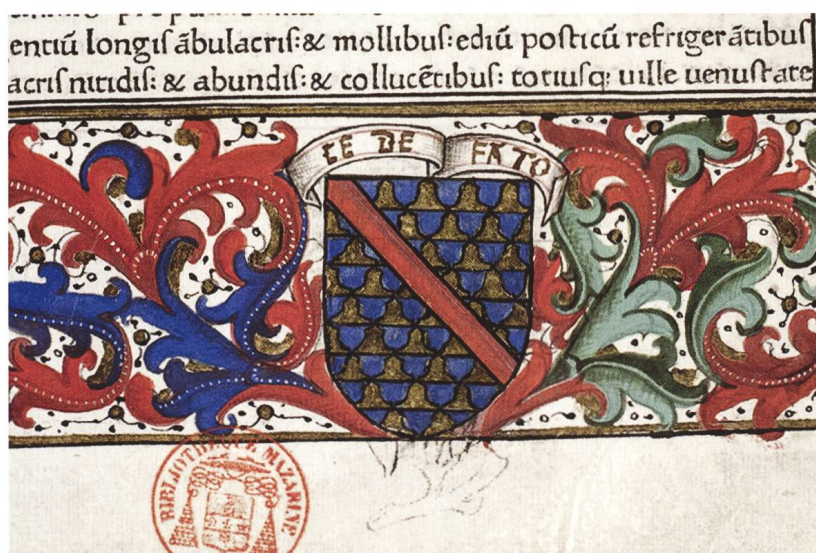 entiū longiſ ābulacriſ:& mollibuſ:ediū poſticū refrigerātibuſ
acriſ nitidiſ: & abundiſ:& collucētibuſ: totiuſq; uille uenuſtate
CE DE FATO
BIBLIOTHECÆ MAZARINÆ